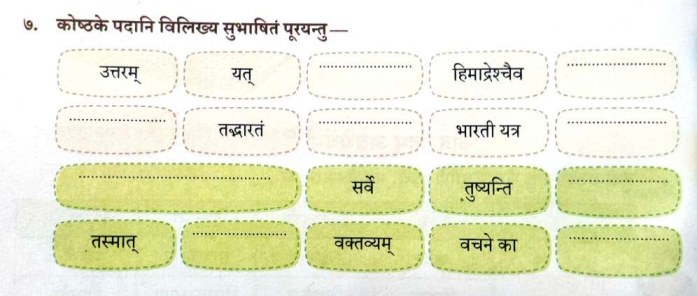 ७. कोष्ठके पदानि विलिख्य सुभाषितं पूरयन्तु—
उत्तरम् यत् .................... हिमाद्रेश्चैव ....................
.................... तद्भारतं .................... भारती यत्र ....................
........................................ सर्वे तुष्यन्ति ....................
तस्मात् .................... वक्तव्यम् वचने का ....................